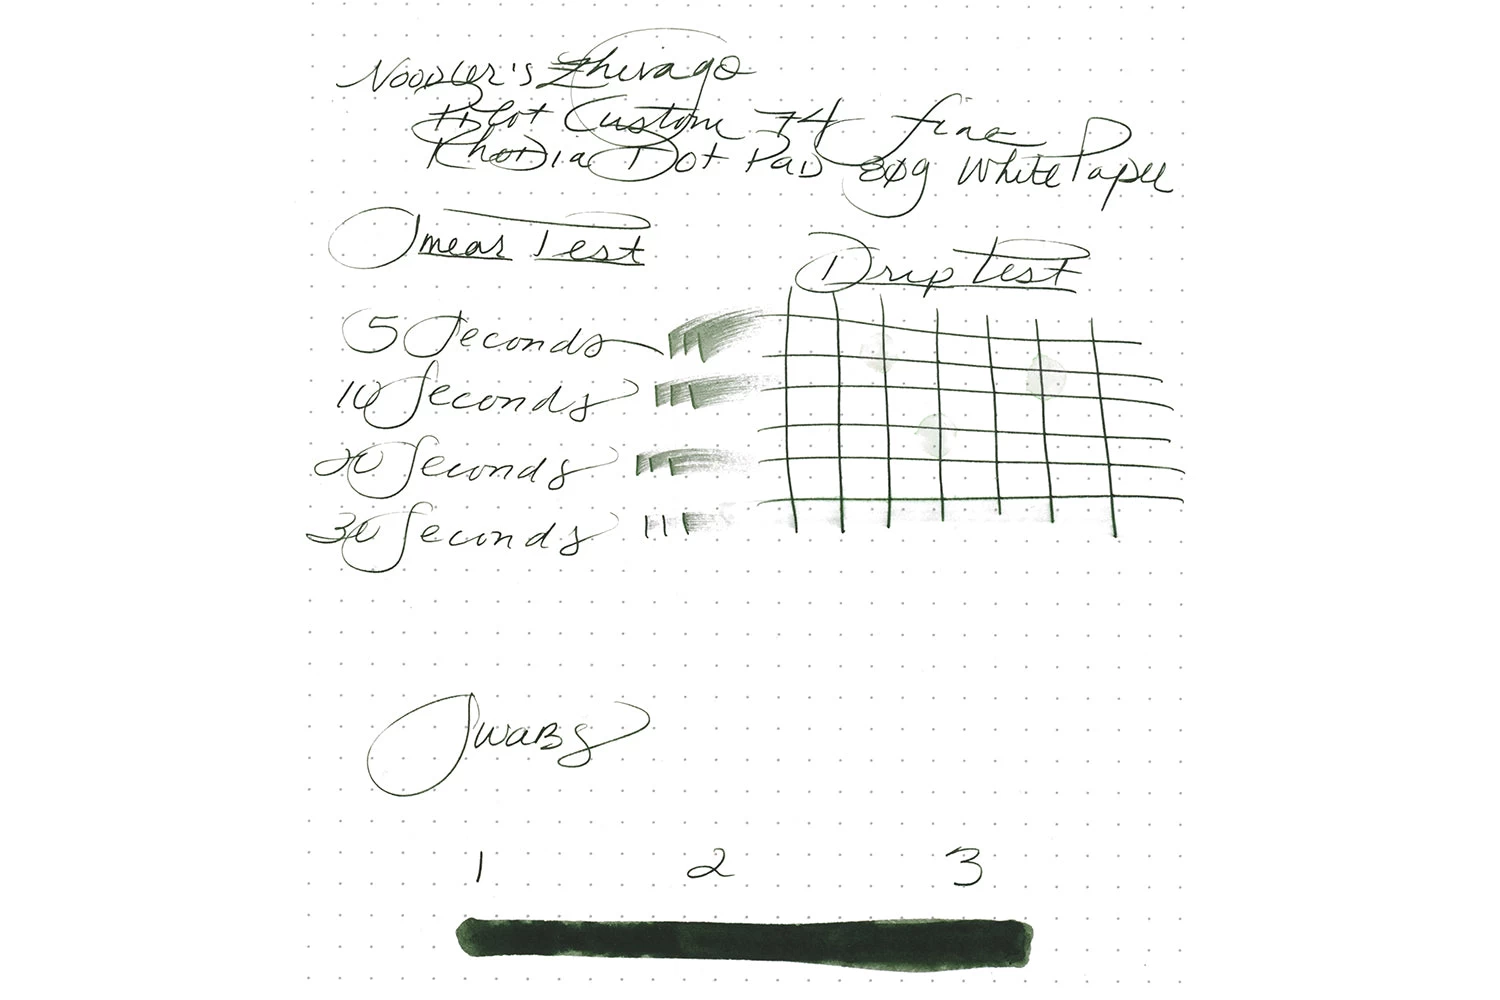 Noodler's Zhivago
Pilot Custom 74 fine
Rhodia Dot Pad 80g White Paper
Smear Test
Drip Test
5 Seconds
10 Seconds
20 Seconds
30 Seconds
Swabs
1 2 3